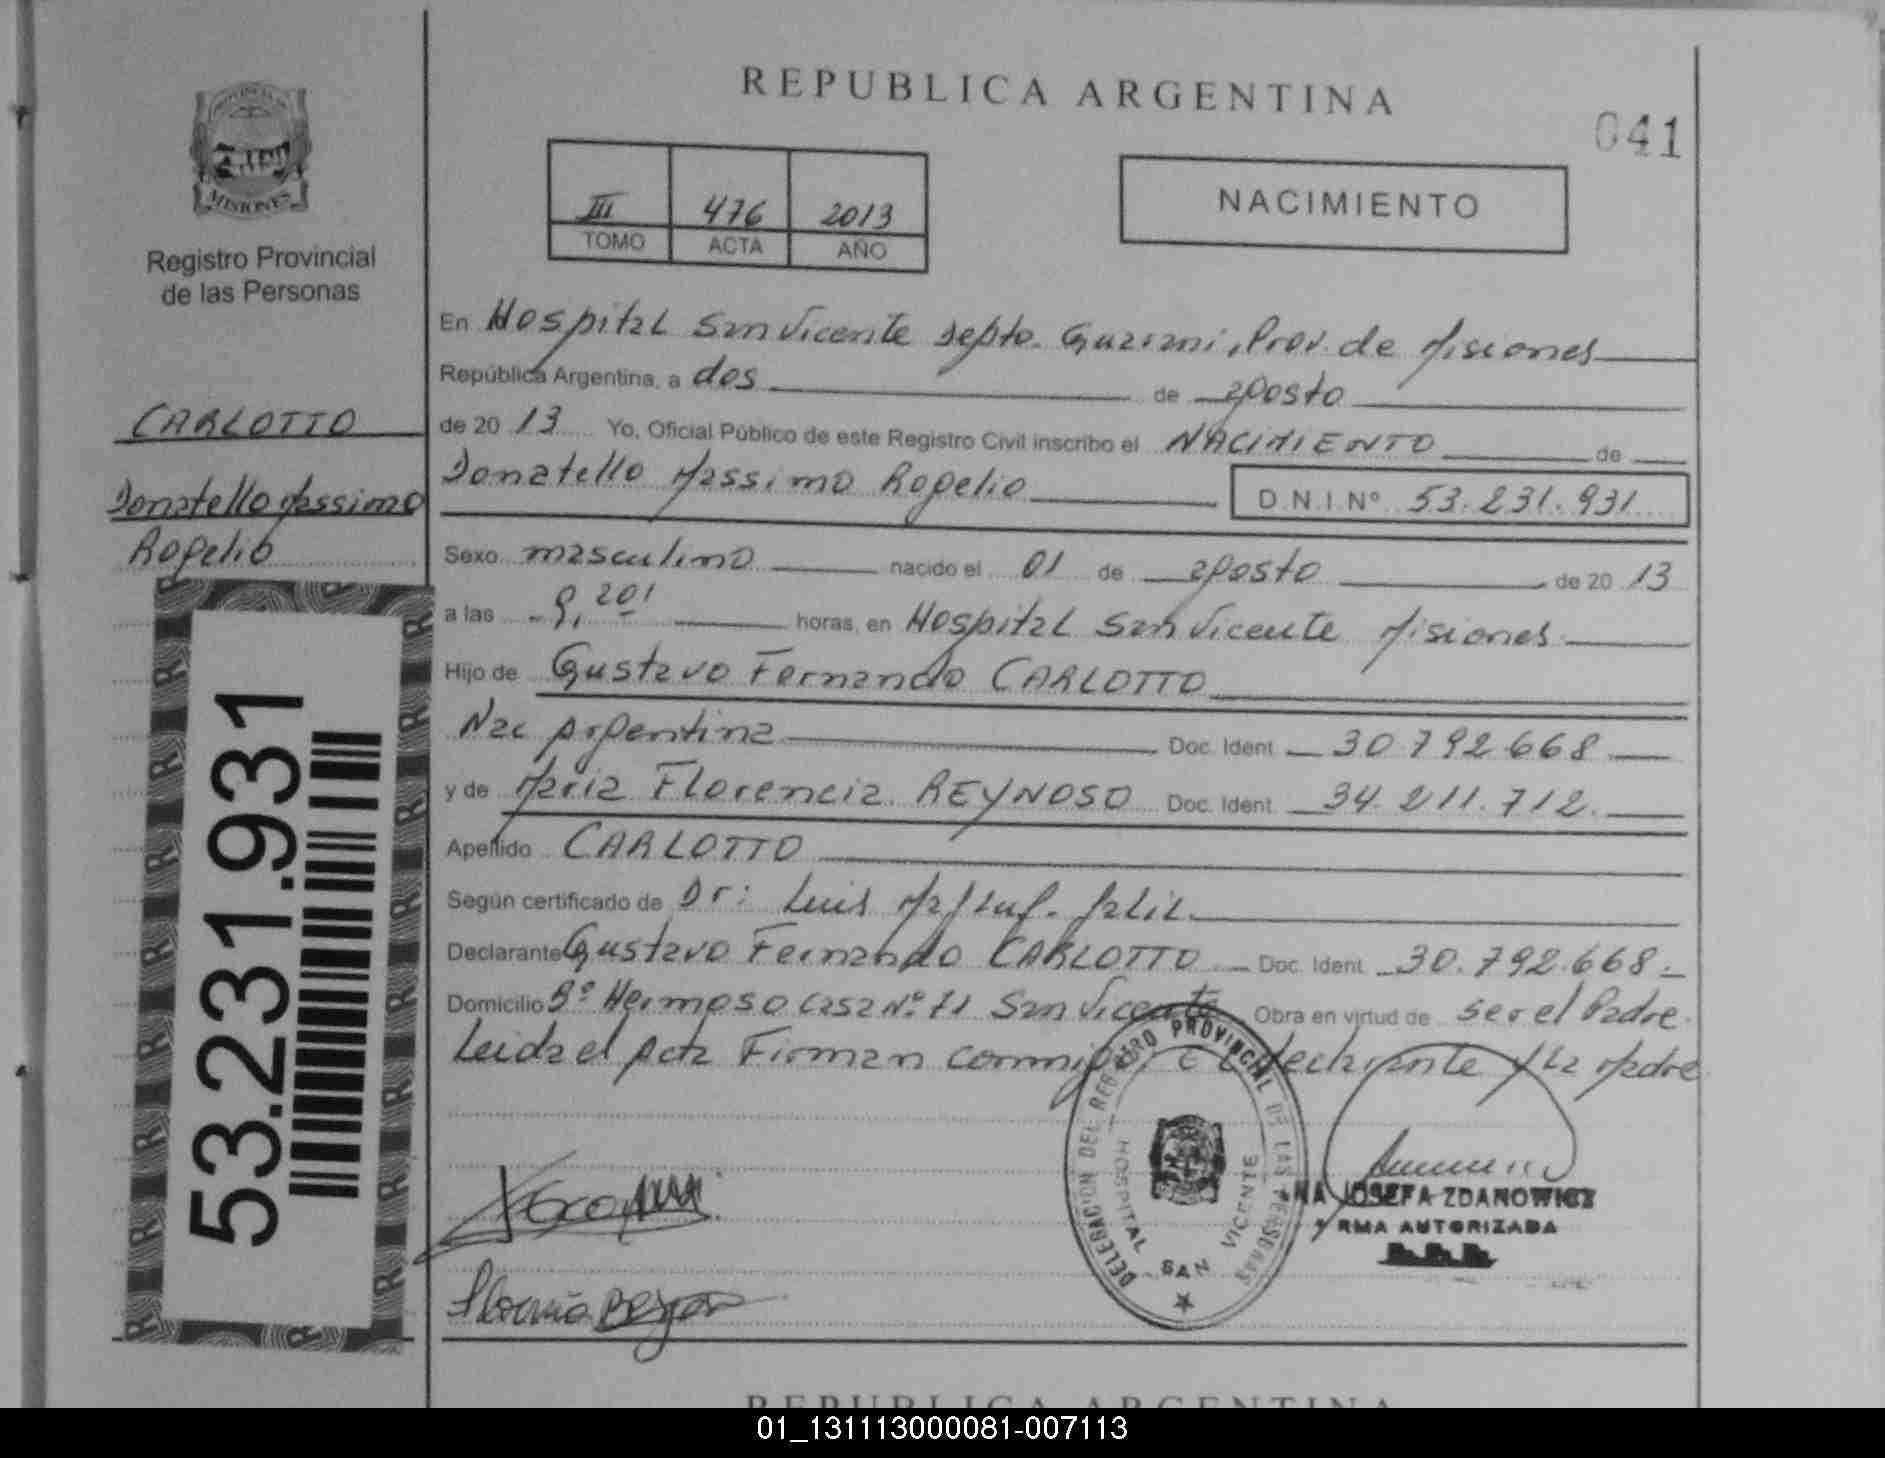 REPUBLICA ARGENTINA
041
PROVINCIA DE
MISIONES
Registro Provincial
de las Personas
III 476 2013
TOMO ACTA AÑO
NACIMIENTO
CARLOTTO
Donatello Massimo
Rogelio
53.231.931
En Hospital San Vicente Depto. Guarani, Prov. de Misiones
República Argentina, a dos de agosto
de 20 13 Yo, Oficial Público de este Registro Civil inscribo el NACIMIENTO de
Donatello Massimo Rogelio D.N.I. Nº 53.231.931
Sexo masculino nacido el 01 de agosto de 20 13
a las 9,20' horas, en Hospital San Vicente Misiones
Hijo de Gustavo Fernando CARLOTTO
Nac Argentina Doc. Ident. 30.792.668
y de Maria Florencia REYNOSO Doc. Ident. 34.211.712.
Apellido CARLOTTO
Según certificado de Dr: Luis
Declarante Gustavo Fernando CARLOTTO Doc. Ident. 30.792.668.
Domicilio Bº Hermoso casa Nº 71 San Vicente Obra en virtud de ser el Padre
Leida el Acta Firman conmigo el declarante y la Madre
DELEGACION DEL REGISTRO PROVINCIAL DE LAS PERSONAS
HOSPITAL SAN VICENTE
JOSEFA ZDANOWICZ
RMA AUTORIZADA
REPUBLICA ARGENTINA
01_131113000081-007113